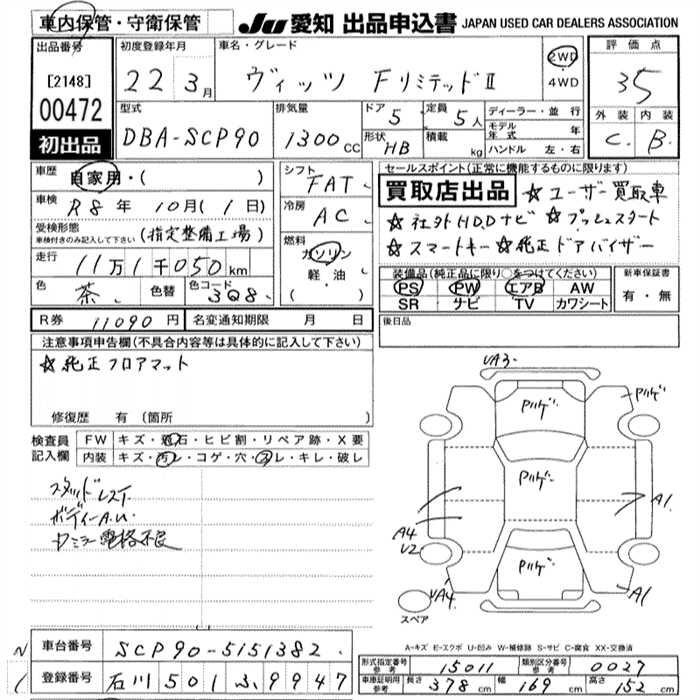 車内保管・守衛保管
JU 愛知 出品申込書 JAPAN USED CAR DEALERS ASSOCIATION
出品番号
[2148]
00472
初出品
初度登録年月
22 3月
車名・グレード
ヴィッツ FリミテッドⅡ
2WD
・
4WD
評価点
35
外装 内装
C. B.
型式
DBA-SCP90
排気量
1300 CC
ドア 5
形状 HB
定員 5人
積載 kg
ディーラー・並行
モデル年式 年
ハンドル 左・右
車歴
自家用・( )
車検
R8年 10月(1日)
受検形態
車検付きのみ記入して下さい
(指定整備工場)
走行
11万1千050km
色
茶
色替
色コード
3Q8
シフト
FAT
冷房
AC
燃料
ガソリン
軽・油
(・)
セールスポイント(正常に機能するものに限ります)
買取店出品 ☆ユーザー買取車
☆社外HDDナビ ☆プッシュスタート
☆スマートキー ☆純正ドアバイザー
装備品(純正品に限り○をつけてください)
PS PW エアB AW
SR ナビ TV カワシート
新車保証書
有・無
R券 11090円
名変通知期限 月 日
後日品
注意事項申告欄(不具合内容等は具体的に記入して下さい)
☆純正フロアマット
修復歴 有(箇所
検査員
記入欄
FW キズ・飛石・ヒビ割・リペア跡・X要
内装 キズ・汚レ・コゲ・穴・スレ・キレ・破レ
スタッドレスT
ボディーA.U
Dミラー電格不良
UA3
Pハゲ
Pハゲ
Pハゲ
A1
A4
U2
Pハゲ
UA4
A1
スペア
A-キズ E-エクボ U-凹み W-補修跡 S-サビ C-腐食 XX-交換済
車台番号 SCP90-5151382
登録番号 石川 501 ふ 9947
形式指定番号
参考
15011
類別区分番号
参考
0027
車庫証明用
参考
長さ 378 cm 幅 169 cm 高さ 152 cm